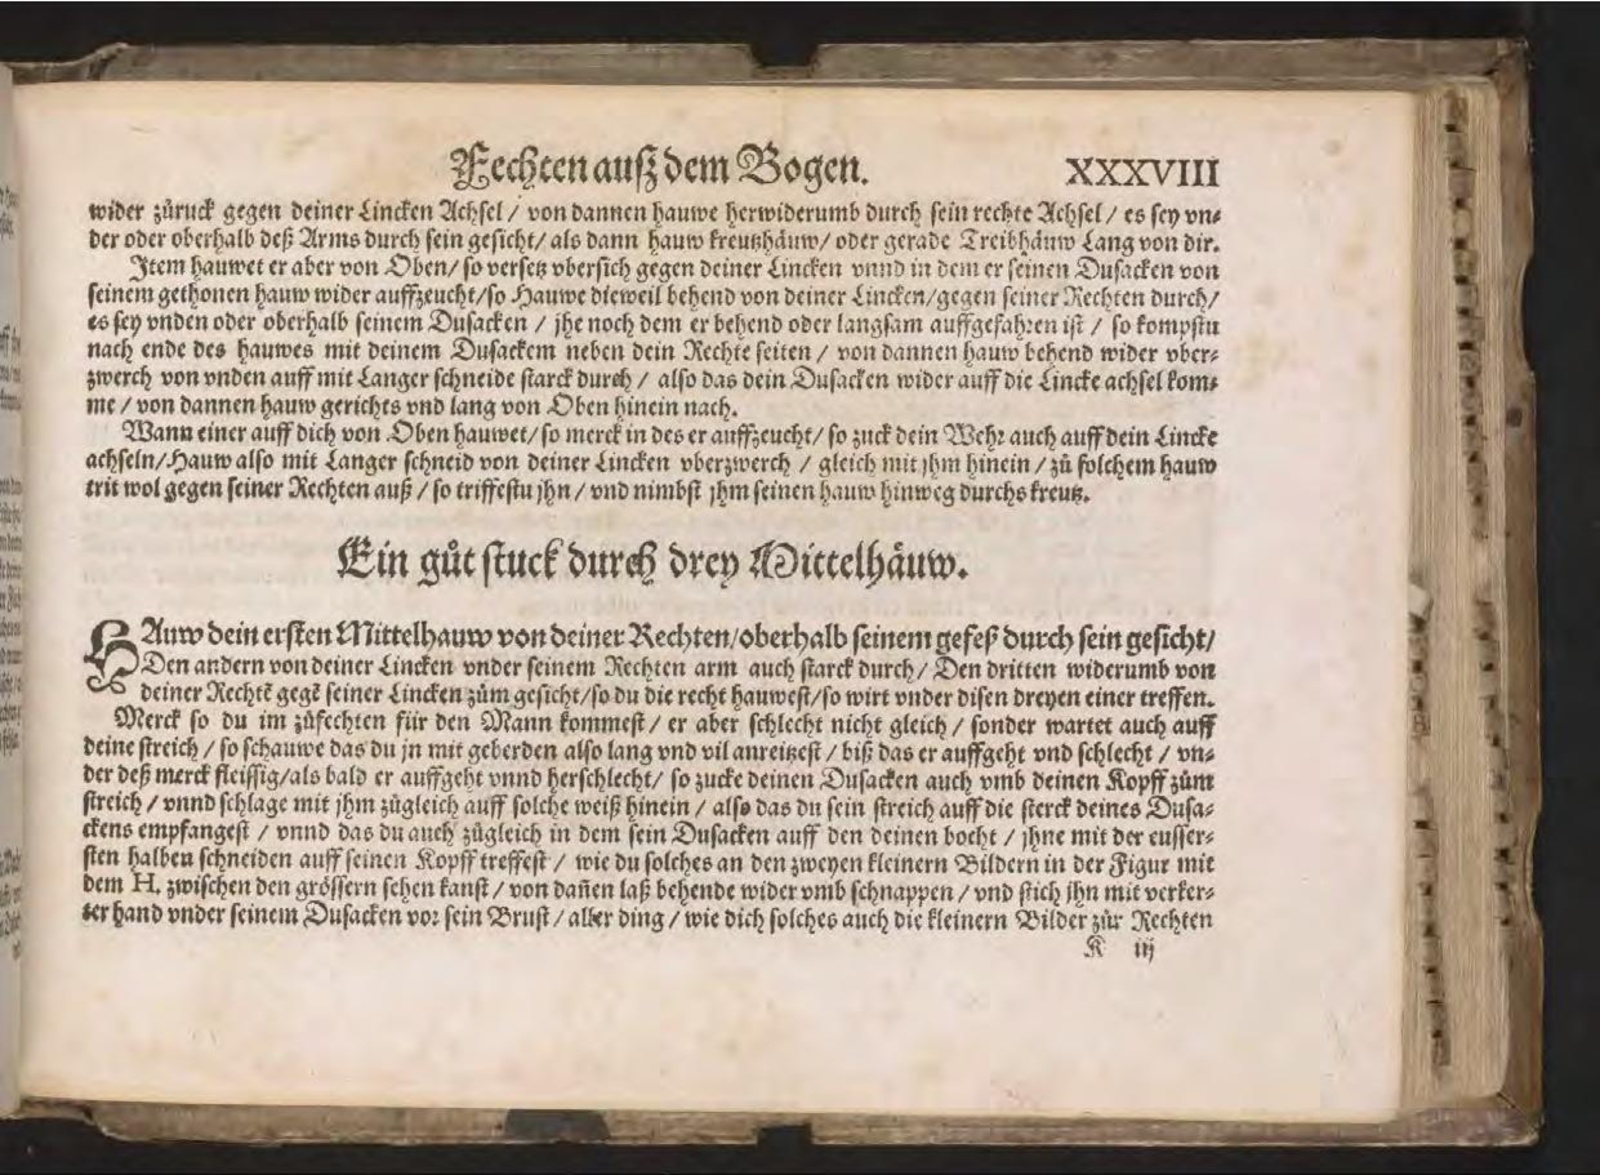 Fechten auß dem Bogen. XXXVIII
wider zůruck gegen deiner Lincken Achsel / von dannen hauwe herwiderumb durch sein rechte Achsel / es sey vn⸗
der oder oberhalb deß Arms durch sein gesicht / als dann hauw kreutzhäuw / oder gerade Treibhäuw Lang von dir.
Item hauwet er aber von Oben / so versetz vbersich gegen deiner Lincken vnnd in dem er seinen Dusacken von
seinem gethonen hauw wider auffzeucht / so Hauwe dieweil behend von deiner Lincken / gegen seiner Rechten durch /
es sey vnden oder oberhalb seinem Dusacken / jhe noch dem er behend oder langsam auffgefahren ist / so kompstu
nach ende des hauwes mit deinem Dusackem neben dein Rechte seiten / von dannen hauw behend wider vber⸗
zwerch von vnden auff mit Langer schneide starck durch / also das dein Dusacken wider auff die Lincke achsel kom⸗
me / von dannen hauw gerichts vnd lang von Oben hinein nach.
Wann einer auff dich von Oben hauwet / so merck in des er auffzeucht / so zuck dein Wehr auch auff dein Lincke
achseln / Hauw also mit Langer schneid von deiner Lincken vberzwerch / gleich mit jhm hinein / zů solchem hauw
trit wol gegen seiner Rechten auß / so triffestu jhn / vnd nimbst jhm seinen hauw hinweg durchs kreutz.
Ein gůt stuck durch drey Mittelhäuw.
HAuw dein ersten Mittelhauw von deiner Rechten / oberhalb seinem gefeß durch sein gesicht /
Den andern von deiner Lincken vnder seinem Rechten arm auch starck durch / Den dritten widerumb von
deiner Rechtẽ gegẽ seiner Lincken zům gesicht / so du die recht hauwest / so wirt vnder disen dreyen einer treffen.
Merck so du im zůfechten für den Mann kommest / er aber schlecht nicht gleich / sonder wartet auch auff
deine streich / so schauwe das du jn mit geberden also lang vnd vil anreitzest / biß das er auffgeht vnd schlecht / vn⸗
der deß merck fleissig / als bald er auffgeht vnnd herschlecht / so zucke deinen Dusacken auch vmb deinen Kopff zům
streich / vnnd schlage mit jhm zůgleich auff solche weiß hinein / also das du sein streich auff die sterck deines Dusa⸗
ckens empfangest / vnnd das du auch zůgleich in dem sein Dusacken auff den deinen bocht / jhne mit der eusser⸗
sten halben schneiden auff seinen Kopff treffest / wie du solches an den zweyen kleinern Bildern in der Figur mit
dem H. zwischen den grössern sehen kanst / von dañen laß behende wider vmb schnappen / vnd stich jhn mit verker⸗
ter hand vnder seinem Dusacken vor sein Brust / aller ding / wie dich solches auch die kleinern Bilder zůr Rechten
K iij